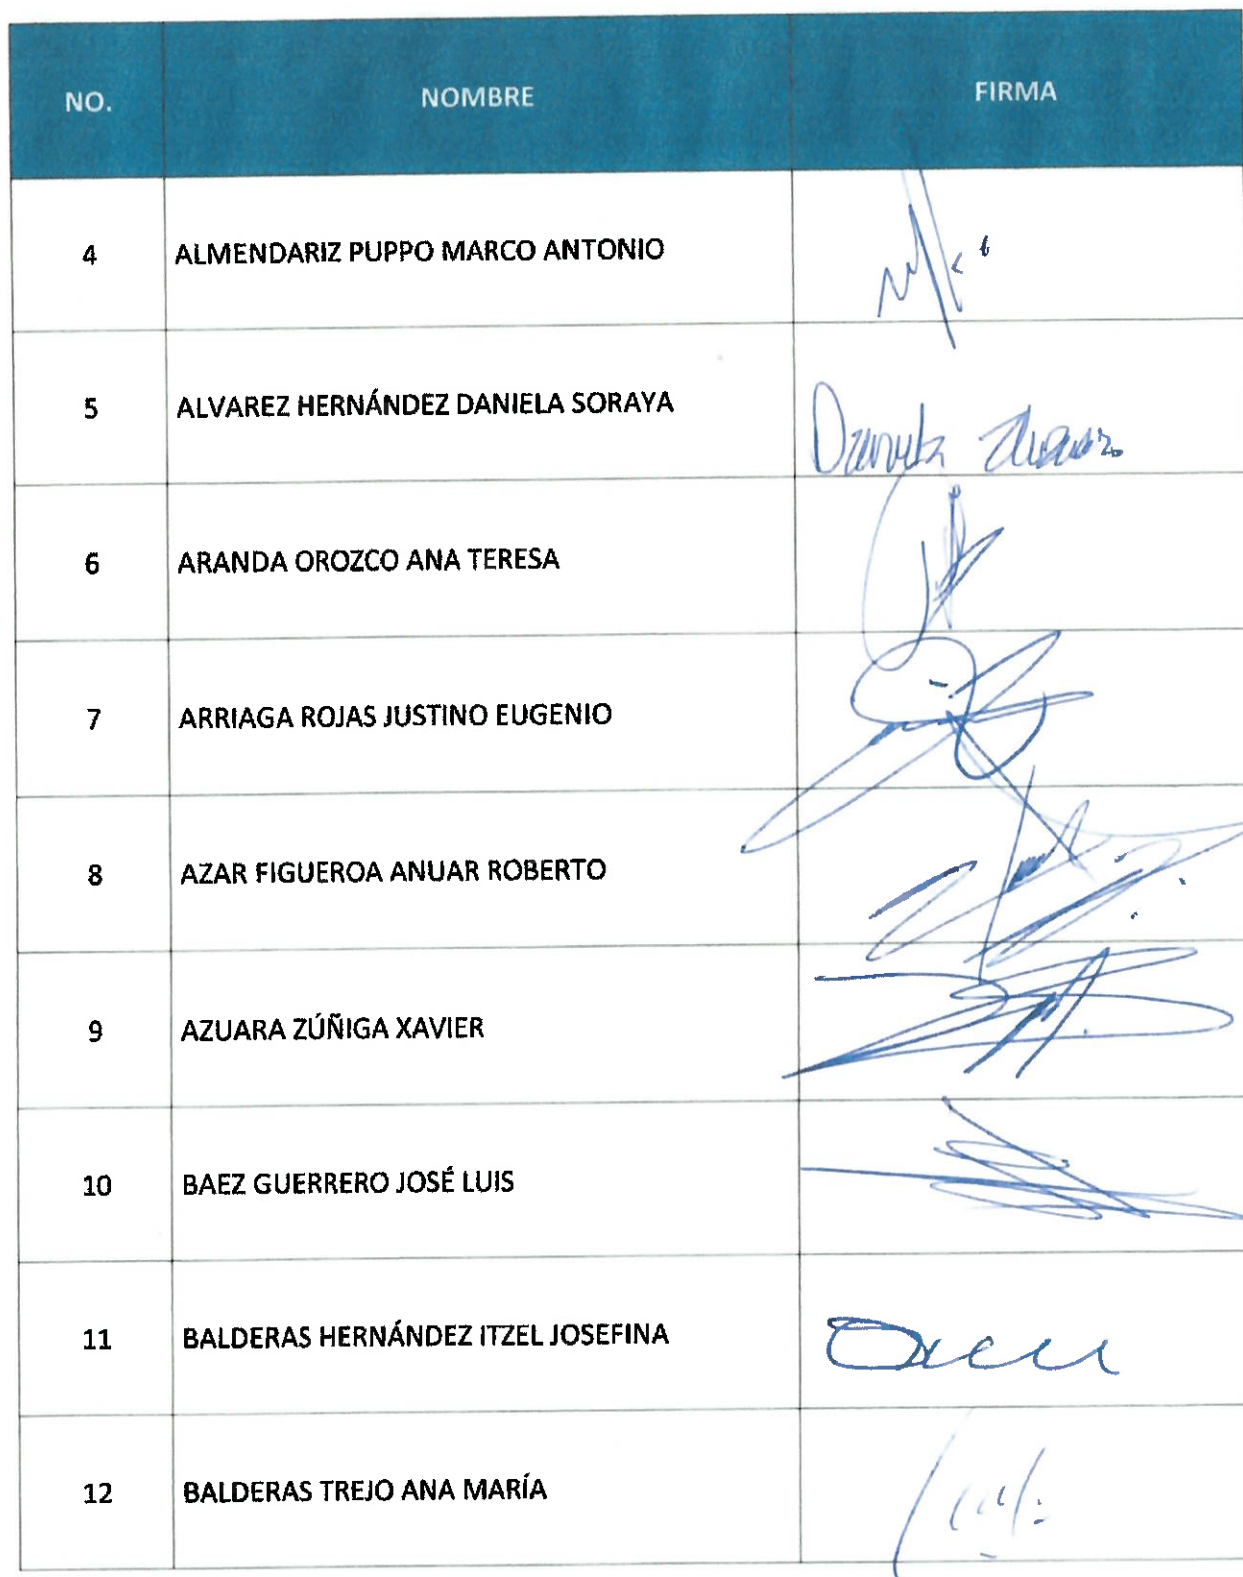 NO. NOMBRE FIRMA
4 ALMENDARIZ PUPPO MARCO ANTONIO
5 ALVAREZ HERNÁNDEZ DANIELA SORAYA
6 ARANDA OROZCO ANA TERESA
7 ARRIAGA ROJAS JUSTINO EUGENIO
8 AZAR FIGUEROA ANUAR ROBERTO
9 AZUARA ZÚÑIGA XAVIER
10 BAEZ GUERRERO JOSÉ LUIS
11 BALDERAS HERNÁNDEZ ITZEL JOSEFINA
12 BALDERAS TREJO ANA MARÍA